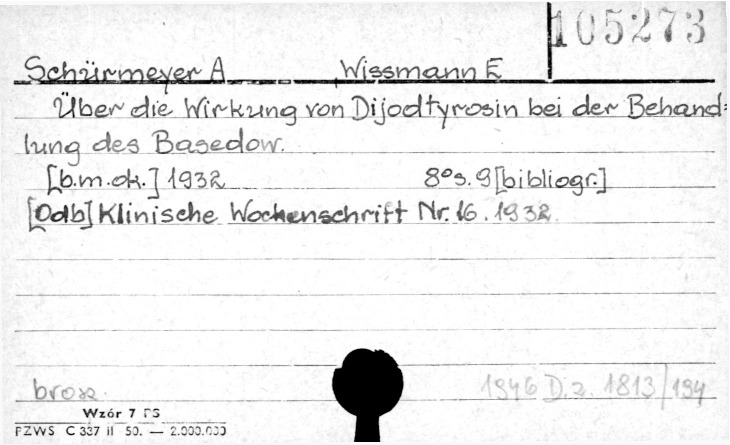 105273
Schürmeyer A Wissmann E
Über die Wirkung von Dijodtyrosin bei der Behand=
lung des Basedow.
[b.m.ok.] 1932 8° s. 9 [bibliogr.]
[Odb] Klinische Wochenschrift Nr. 16. 1932.
brosz. 1946 D.z. 1813/194
Wzór 7 PS
PZWS C 337 il 50. — 2.000.000